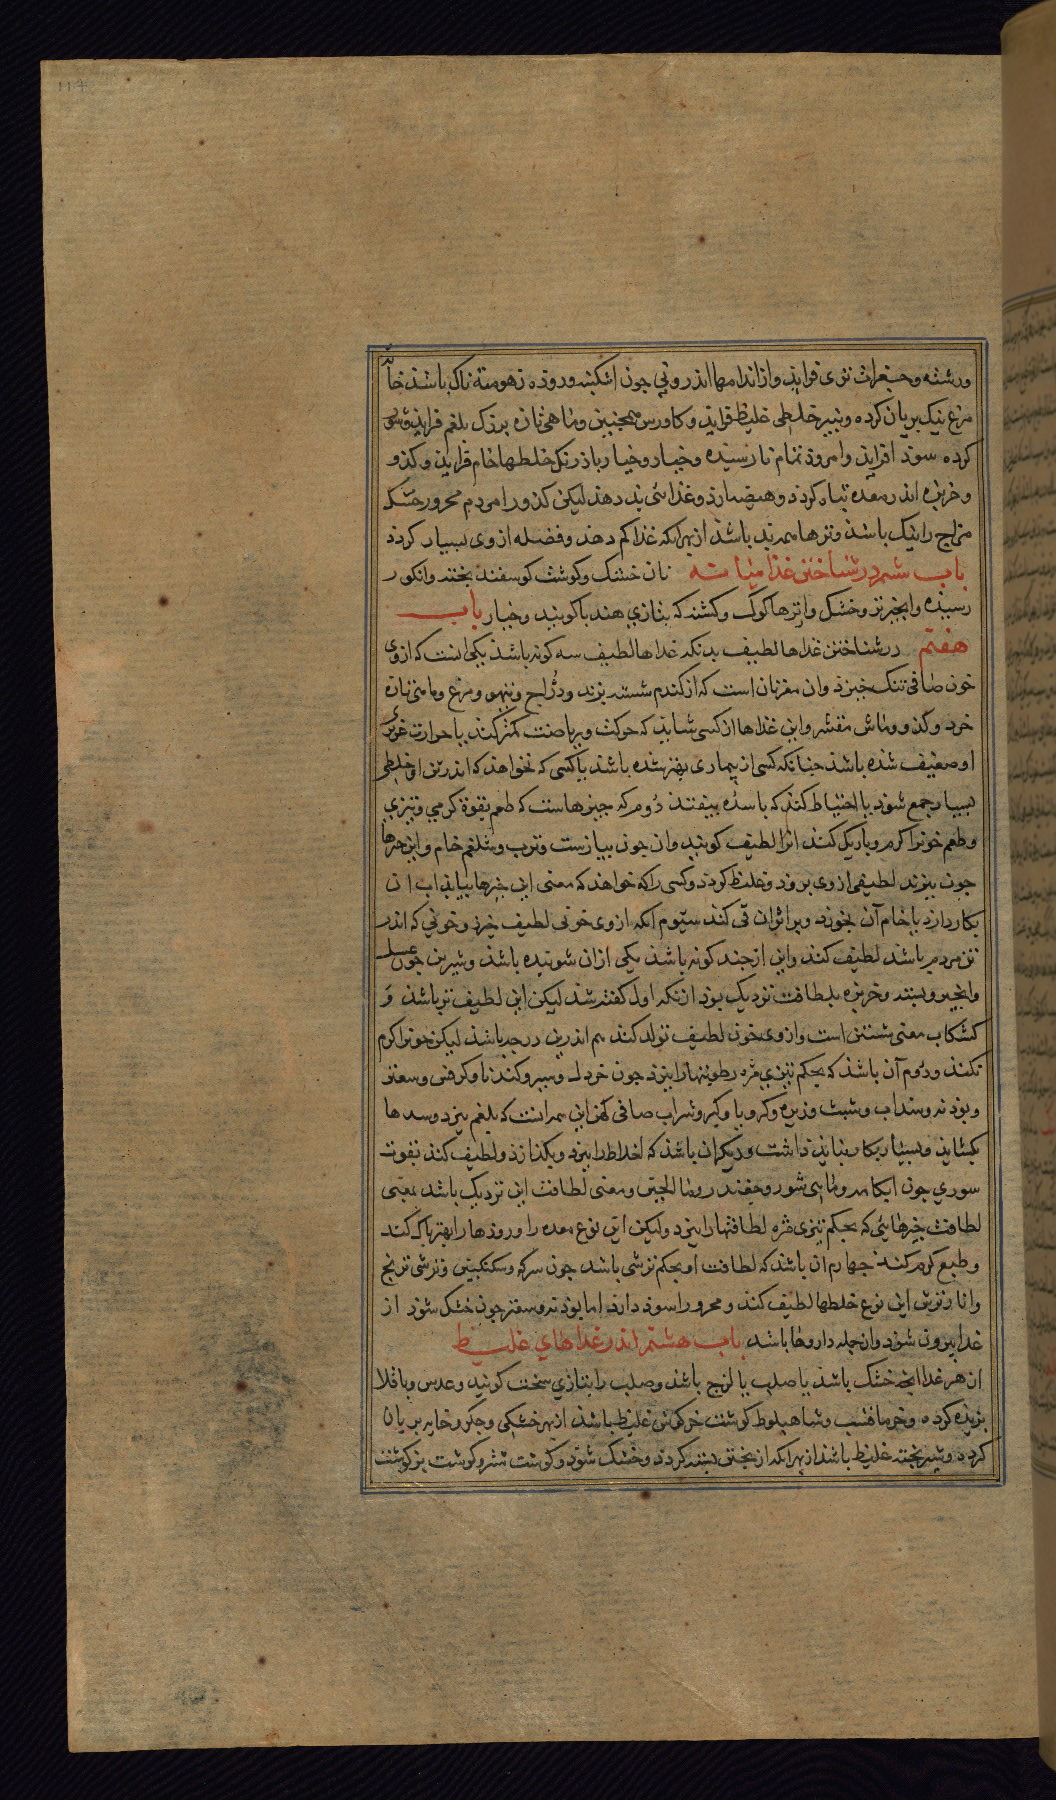 ورشته و جغرات تری فزاید و از اندامها اندرونی چون اشکنبه و روده زهومة ناک باشد خا
مرغ نیک بریان کرده و پنیر خلطی غلیظ فزاید و کاورس همچنین و ماهی تازه بزرک بلغم فزاید و
کرده سودا فزاید و امرود تمام نارسیده و خیار و خیار باذرنک خلطهاء خام فزاید و کدو
و خربزه اندر معده تباه کردد و هیضه آرد و غذائی بد دهد لیکن کدو را مردم محرور خشک
مزاج را نیک باشد و ترها همه بد باشد از بهر انکه غذا کم دهد و فضله از وی بسیار کردد
باب ششم در شناختن غذا میانه نان خشک و کوشت کوسفند پخته و انکور
رسیده و انجیر تر و خشک و از ترها کوک و کشنه که بتازی هندبا کویند و خیار باب
هفتم در شناختن غذاها لطیف بدنکه غذاها لطیف سه کونه باشد یکی انست که از وی
خون صافی تنک خیزد و ان مغز نان است که از کندم شسته پزند و دراج و تیهو و مرغ و ماهی تازه
خرد و کدو و ماش مقشر و این غذاها از کسی شاید که حرکت و ریاضت کمتر کند یا حرارت غریزی
او ضعیف شده باشد چنانکه کسی از بیماری بهتر شده باشد یا کسی که نخواهد که اندر تن او خلطی
بسیار جمع شود یا احتیاط کند که با سده بیفتد دوم که چیزهاست که طعم بقوة کرمی و تیزی
و طعم خونرا کرم و باریک کند انرا لطیف کویند و ان چون پیازست و ترب و شلغم خام و این چیزها
چون بپزند لطیفی از وی برود و غلیظ کردد و کسی را که خواهد که معنی این چیزها بیابد اب ان
بکار دارد یا خام آن بخورد و بر اثر ان قی کند سیوم انکه از وی خونی لطیف خیزد و خونی که اندر
تن مردم باشد لطیف کند و این از چند کونه باشد یکی ازان شوینده باشد و شیرین چون عسل
و انجیر و پسته و خربزه بلطافت نزدیک بود ازنکه اول کفته شد لیکن این لطیف تر باشد و
کشکاب معنی شستن است و از وی خون لطیف تولد کند هم اندرین درجه باشد لیکن خونرا کرم
نکند و دوم آن باشد که بحکم تیزی مزه رطوبتها را ببرد چون خردل و سیر و کندنا و کرفس و سعتر
و پودنه و سداب و شبت و زیره و کرویا و کبر و شراب صافی کهن این همه انست که بلغم ببرد و سدها
بکشاید و بسیار بکار نباید داشت و دیکر ان باشد که اخلاط را ببرد و بکدازد و لطیف کند بقوت
شوری چون ابکامه و ماهی شور و چغندر و ماء الجبن و معنی لطافت این نزدیک باشد بمعنی
لطافت چیزهائی که بحکم تیزی مزه لطافتها را ببرد ولیکن این نوع معده را و روذها را بهتر پاک کند
و طبع کرم کند چهارم ان باشد که لطافت او بحکم ترشی باشد چون سرکه و سکنکبین و ترشی ترنج
و انار ترش این نوع خلطها لطیف کند و محرور را سود دارد اما پودنه و سعتر چون خشک شود از
غدا بیرون شود و از جمله داروها باشد باب هشتم اندر غذاهای غلیظ
ان هر غذا انچه خشک باشد یا صلب یا لزج باشد و صلب را بتازی سخت کویند و عدس و باقلا
بریده کرده و خرما قسب و شاهبلوط کوشت خرکوش غلیظ باشد از بهر خشکی و جکر و خایه بریان
کرده و شیر پخته غلیظ باشد از بهر انکه از پختن بسته کردد و خشک شود و کوشت شتر و کوشت بز کوشت